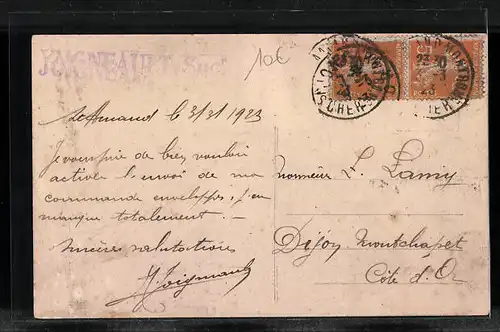 JOIGNEAULT, Suc^r
10c
St Amand le 3/3/1923
Je vous prie de bien vouloir
activer l'envoi de ma
commande enveloppes, j'en
manque totalement. —
Sincères salutations
Joigneault
Monsieur L. Lamy
Dijon Montchapet
Côte d'Or
23 30
-3
23
CHER